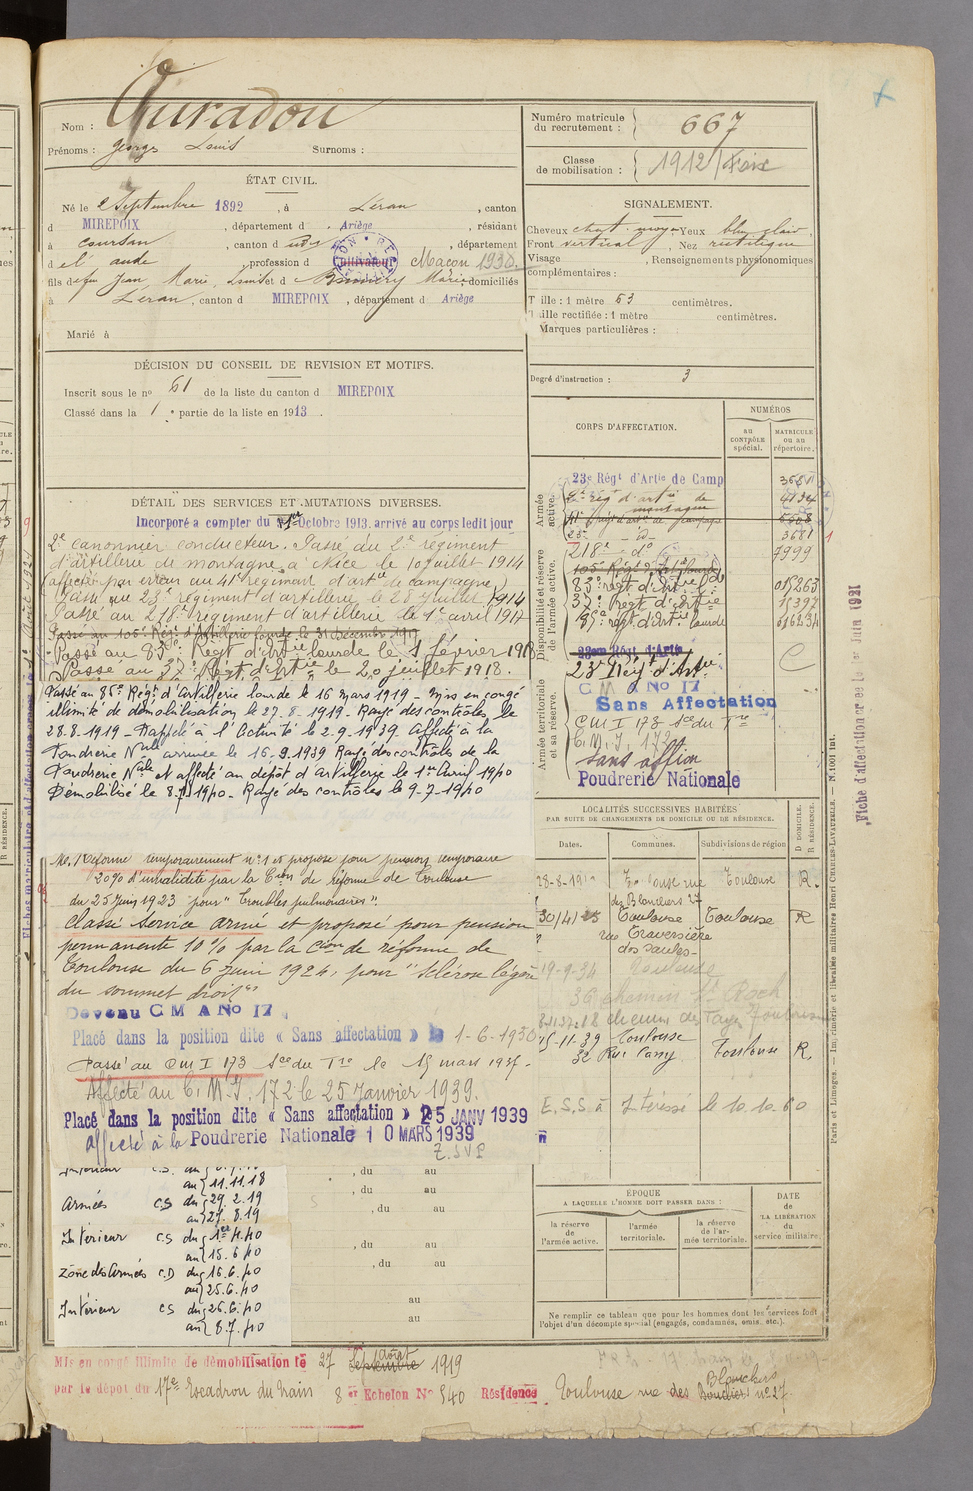 Nom : Auradou
Prénoms : Georges Louis Surnoms :
Numéro matricule du recrutement : 667
Classe de mobilisation : 1912 Foix
ÉTAT CIVIL.
Né le 2 Septembre 1892, à Léran, canton
d MIREPOIX, département d Ariège, résidant
à Coursan, canton d udos, département
d el' aude, profession d cultivateur Macon 1930.
fils de feu Jean, Marie, Louis et d Marie domiciliés
à Léran, canton d MIREPOIX, département d Ariège
Marié à
SIGNALEMENT.
Cheveux chat. moyen Yeux bleu clair
Front vertical, Nez rectiligne
Visage , Renseignements physionomiques
complémentaires :
Taille : 1 mètre 63 centimètres.
Taille rectifiée : 1 mètre centimètres.
Marques particulières :
Degré d'instruction : 3
DÉCISION DU CONSEIL DE REVISION ET MOTIFS.
Inscrit sous le n° 61 de la liste du canton d MIREPOIX
Classé dans la 1 e partie de la liste en 1913.
DÉTAIL DES SERVICES ET MUTATIONS DIVERSES.
Incorporé a compter du 1er Octobre 1913. arrivé au corps ledit jour
2e canonnier conducteur. Passé au 2e régiment
d'artillerie de montagne à Nice le 10 juillet 1914
(affecté par erreur au 41e régiment d'artie de campagne)
Passé au 23e régiment d'artillerie le 28 juillet 1914
Passé au 218e régiment d'artillerie le 1er avril 1917
Passé au 105e Régt d'Artillerie lourde le 31 décembre 1917
Passé au 83e Régt d'Artie lourde le 1 février 1918
Passé au 37e Régt d'Artie le 20 juillet 1918.
Passé au 85e Régt d'Artillerie lourde le 16 mars 1919 - Mis en congé
illimité de démobilisation le 27-8-1919 - Rayé des contrôles le
28.8.1919 - Rappelé à l'Activité le 2.9.1939. Affecté à la
Poudrerie Nale arrivée le 16.9.1939 Rayé des contrôles de la
Poudrerie Nale et affecté au dépôt d'Artillerie le 1er Avril 1940
Démobilisé le 8.7.1940 - Rayé des contrôles le 9-7-1940
Réformé temporairement n° 1 et proposé pour pension temporaire
20% d'invalidité par la Cion de réforme de Toulouse
du 25 juin 1923 pour "Troubles pulmonaires".
Classé Service armé et proposé pour pension
permanente 10% par la Cion de réforme de
Toulouse du 6 juin 1924, pour "Sclérose légère
du sommet droit"
Devenu C M A No 17
Placé dans la position dite « Sans affectation » le 1-6-1930
Passé au CM I 173 Son du Tre le 15 mars 1937.
Affecté au C.M.I. 172 le 25 Janvier 1939.
Placé dans la position dite « Sans affectation » 25 JANV 1939
affecté à la Poudrerie Nationale 10 MARS 1939
T.S.V.P.
CORPS D'AFFECTATION.
NUMÉROS
au CONTRÔLE spécial.
MATRICULE ou au répertoire.
Armée active.
23e Régt d'Artie de Camp
2e régt d'artie de montagne
41e Régt d'artie de campagne
23 - id - 3681
Disponibilité et réserve de l'armée active.
218e - do 7999
105e Régt d'Art. lourde
83e régt d'Artie 015263
37e Régt d'Artie 15397
85e régt d'Artie lourde 016234
23em Régt d'Artie
23e Régt d'Artie C
Armée territoriale et sa réserve.
C M A No 17
Sans Affectation
CM I 173 Son du Tre
C.M.I. 172
sans affon
Poudrerie Nationale
LOCALITÉS SUCCESSIVES HABITÉES
PAR SUITE DE CHANGEMENTS DE DOMICILE OU DE RÉSIDENCE.
Dates. Communes. Subdivisions de région D DOMICILE. R RÉSIDENCE.
28-8-1919 Toulouse rue des Blanchers 27 Toulouse R.
30/4/25 Toulouse rue Traversière des Saules - Toulouse R
19-9-34 Toulouse
36 chemin St Roch
15-11.39 Toulouse
32 Rue Pany Toulouse R.
E.S.S. à Intéressé le 10.10.60
Intérieur C.S.
au 11.11.18
Armées C.S du 29.2.19
au 27.8.19
Intérieur C.S du 1er.4.40
au 15.6.40
Zone des Armées C.D du 16.6.40
au 25.6.40
Intérieur C.S du 26.6.40
au 8.7.40
, du au
, du au
, du au
, du au
, du au
au
au
ÉPOQUE
A LAQUELLE L'HOMME DOIT PASSER DANS :
la réserve de l'armée active.
l'armée territoriale.
la réserve de l'armée territoriale.
DATE de LA LIBÉRATION du service militaire.
Ne remplir ce tableau que pour les hommes dont les services font
l'objet d'un décompte spécial (engagés, condamnés, omis, etc.).
Mis en congé illimité de démobilisation le 27 Septembre Août 1919
par le dépôt du 17e Escadron du Train 8e Echelon No 540 Résidence Toulouse rue des Blanchers n° 27.
Fiche d'affectation créée le 1er Juin 1921
Paris et Limoges. — Imprimerie et librairie militaires Henri CHARLES-LAVAUZELLE. — N. 1001 int.